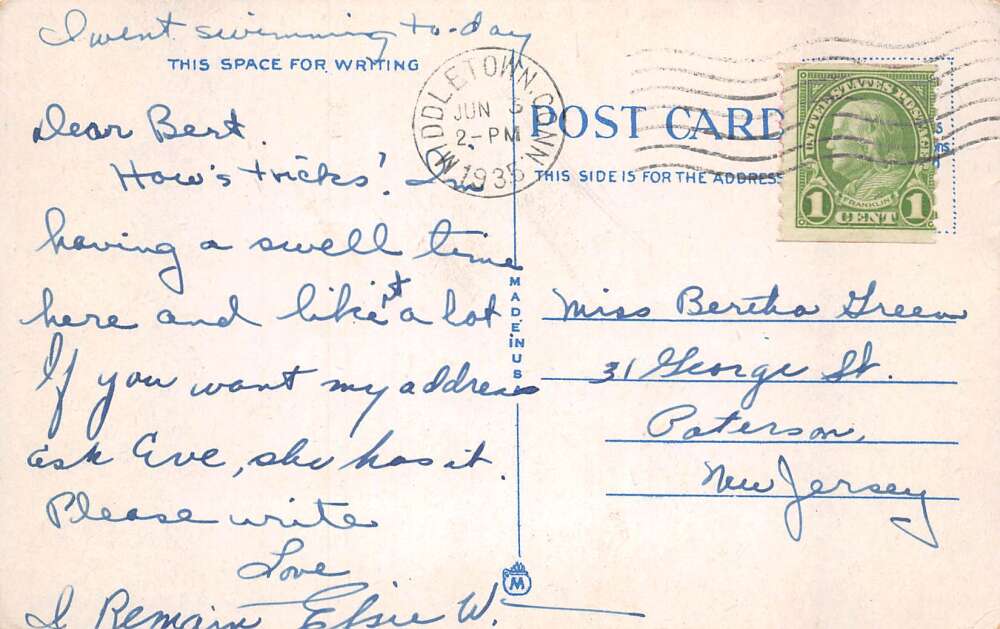 I went swimming to-day
THIS SPACE FOR WRITING
Dear Bert
How's tricks? I'm
having a swell time
here and like it a lot
If you want my address
ask Eve, she has it.
Please write
Love
I Remain Elsie W.
MIDDLETOWN. CONN.
JUN 3
2-PM
1935
POST CARD
THIS SIDE IS FOR THE ADDRESS
UNITED STATES POSTAGE
FRANKLIN
1 CENT 1
MADE IN U S
Miss Bertha Green
31 George St.
Paterson,
New Jersey
M